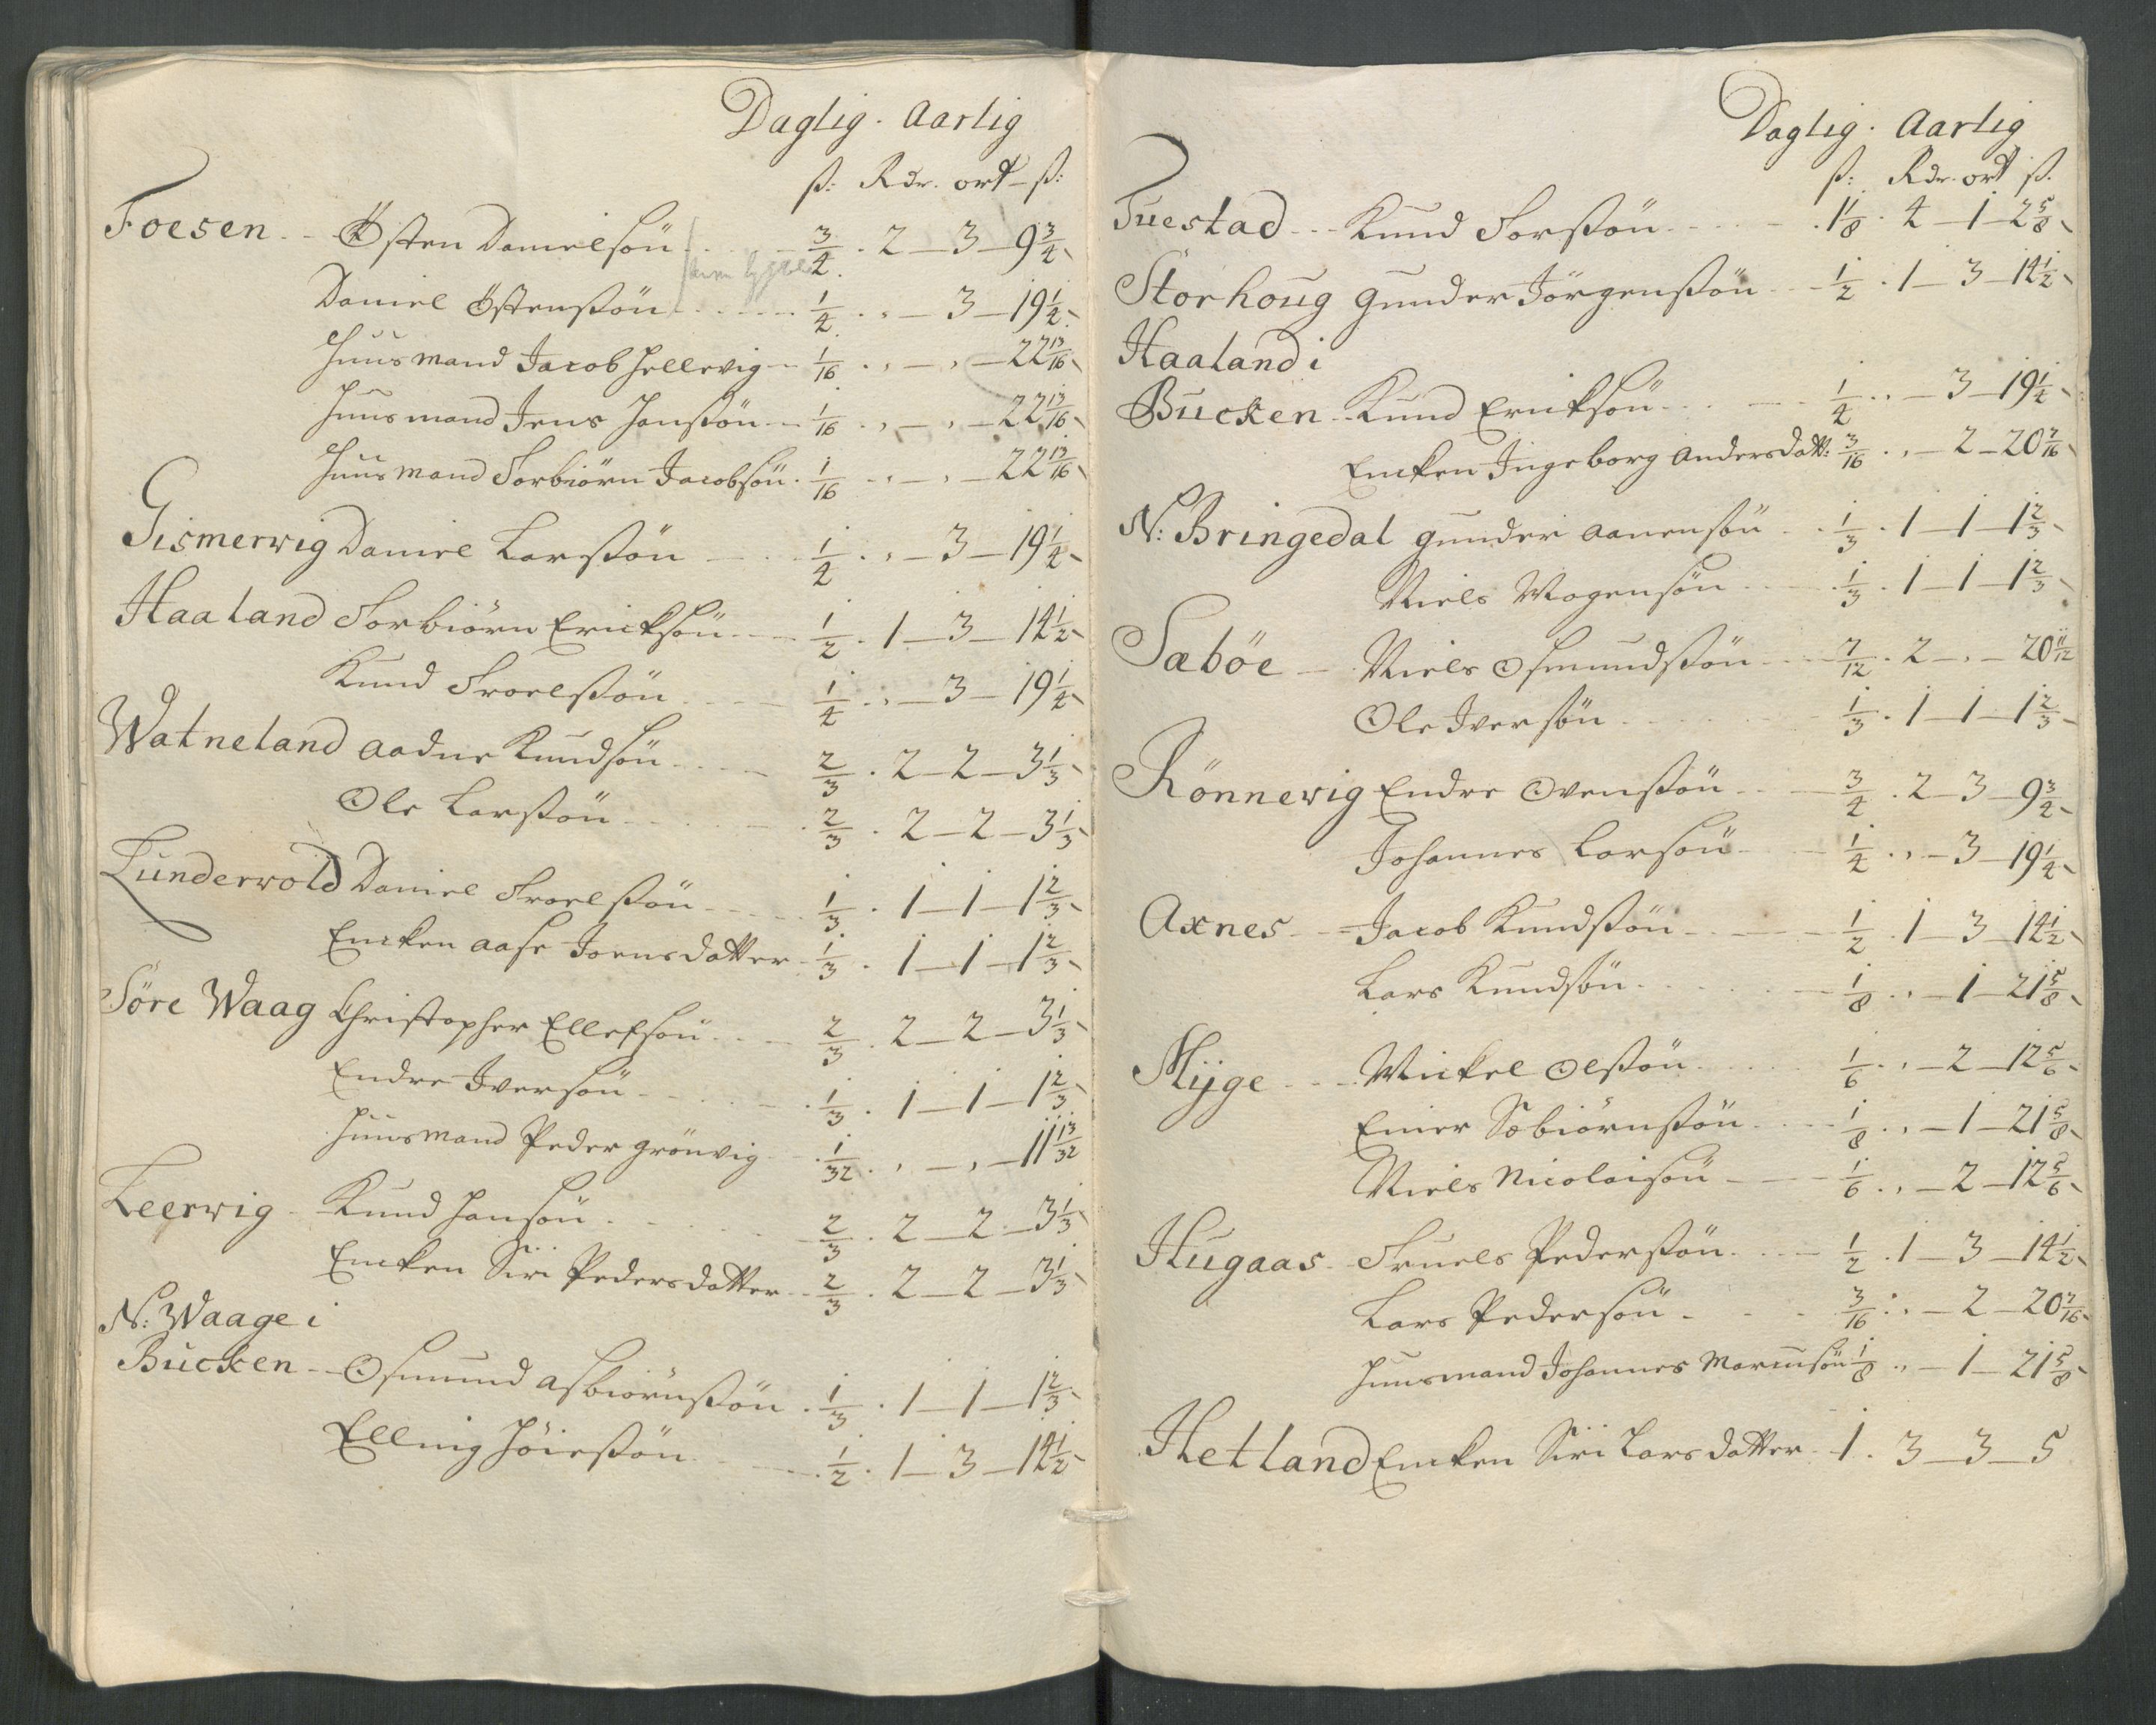 Daglig. Aarlig
ß: Rdr. ort – ß:
Foesen – Östen Danielsön 3/4 . 2 – 3 – 9 3/4
Daniel Östensön 1/4 . „ – 3 – 19 1/4
Huusmand Jacob Hellevig 1/16 . „ – „ – 22 13/16
Huusmand Jens Hansön 1/16 . „ – „ – 22 13/16
Huusmand Torbiörn Jacobsön 1/16 . „ – „ – 22 13/16
Gismervig Daniel Larsön 1/4 . „ – 3 – 19 1/4
Haaland Torbiörn Ericksön 1/2 . 1 – 3 – 14 1/2
Knud Troelsön 1/4 . „ – 3 – 19 1/4
Watneland Aadne Knudsön 2/3 . 2 – 2 – 3 1/3
Ole Larsön 2/3 . 2 – 2 – 3 1/3
Lundervold Daniel Troelsön 1/3 . 1 – 1 – 1 2/3
Encken Aase Joensdatter 1/3 . 1 – 1 – 1 2/3
Söre Waag Christopher Ellefsön 2/3 . 2 – 2 – 3 1/3
Endre Iversön 1/3 . 1 – 1 – 1 2/3
Huusmand Peder Grönvig 1/32 . „ – „ – 11 13/32
Leervig – Knud Hansön 2/3 . 2 – 2 – 3 1/3
Encken Siri Pedersdatter 2/3 . 2 – 2 – 3 1/3
N: Waage i
Bucken – Osmund Asbiörnsön 1/3 . 1 – 1 – 1 2/3
Elling Höiesön 1/2 . 1 – 3 – 14 1/2
Daglig. Aarlig
ß: Rdr. ort ß.
Tuestad – Knud Torsön 1 1/8 . 4 – 1 – 2 5/8
Storhoug Gunder Jörgensön 1/2 . 1 – 3 – 14 1/2
Haaland i
Bucken – Knud Ericksön 1/4 . „ – 3 – 19 1/4
Encken Ingeborg Andersdatt: 3/16 . „ – 2 – 20 7/16
N: Bringedal Gunder Aanensön 1/3 . 1 – 1 – 1 2/3
Niels Mogensön 1/3 . 1 – 1 – 1 2/3
Sæböe – Niels Osmundsön 7/12 . 2 – „ – 20 11/12
Ole Iversön 1/3 . 1 – 1 – 1 2/3
Rönnevig Endre Ovensön 3/4 . 2 – 3 – 9 3/4
Johannes Larsön 1/4 . „ – 3 – 19 1/4
Axnes – Jacob Knudsön 1/2 . 1 – 3 – 14 1/2
Lars Knudsön 1/8 . „ – 1 – 21 5/8
Myge – Mickel Olsön 1/6 . „ – 2 – 12 5/6
Einer Sebiörnsön 1/8 . „ – 1 – 21 5/8
Niels Nicolaisön 1/6 . „ – 2 – 12 5/6
Hugaas – Truels Pedersön 1/2 . 1 – 3 – 14 1/2
Lars Pedersön 3/16 . „ – 2 – 20 7/16
Huusmand Johannes 1/8 . „ – 1 – 21 5/8
Hetland Encken Siri Larsdatter 1 . 3 – 3 – 5